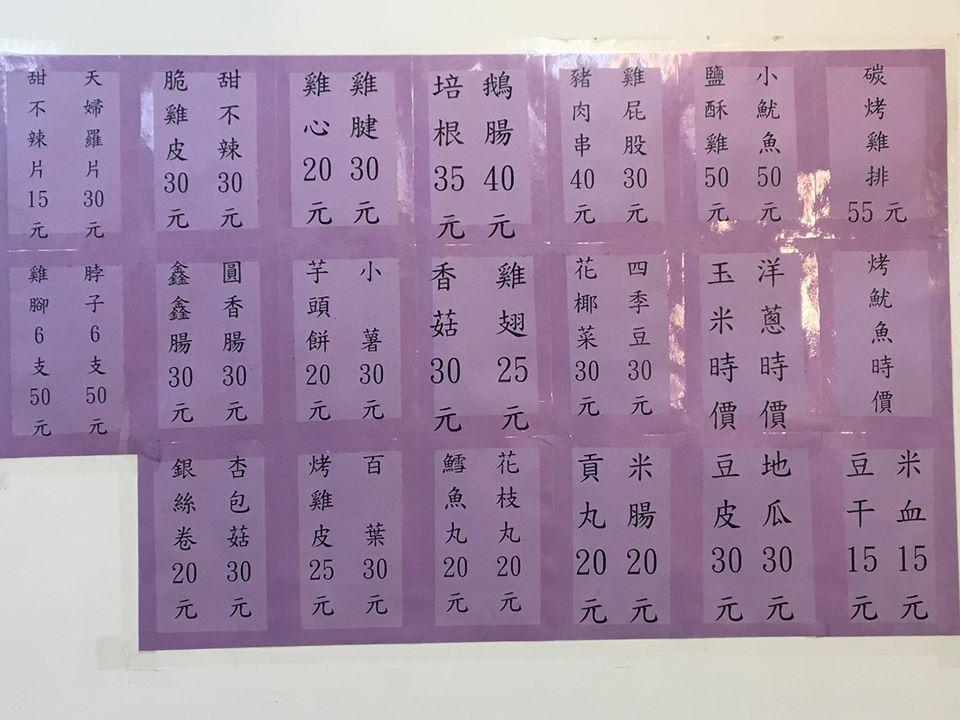 碳烤雞排55元
小魷魚50元
鹽酥雞50元
雞屁股30元
豬肉串40元
鵝腸40元
培根35元
雞腱30元
雞心20元
甜不辣30元
脆雞皮30元
天婦羅片30元
甜不辣片15元
烤魷魚時價
洋蔥時價
玉米時價
四季豆30元
花椰菜30元
雞翅25元
香菇30元
小薯30元
芋頭餅20元
圓香腸30元
鑫鑫腸30元
脖子6支50元
雞腳6支50元
米血15元
豆干15元
地瓜30元
豆皮30元
米腸20元
貢丸20元
花枝丸20元
鱈魚丸20元
百葉30元
烤雞皮25元
杏包菇30元
銀絲卷20元